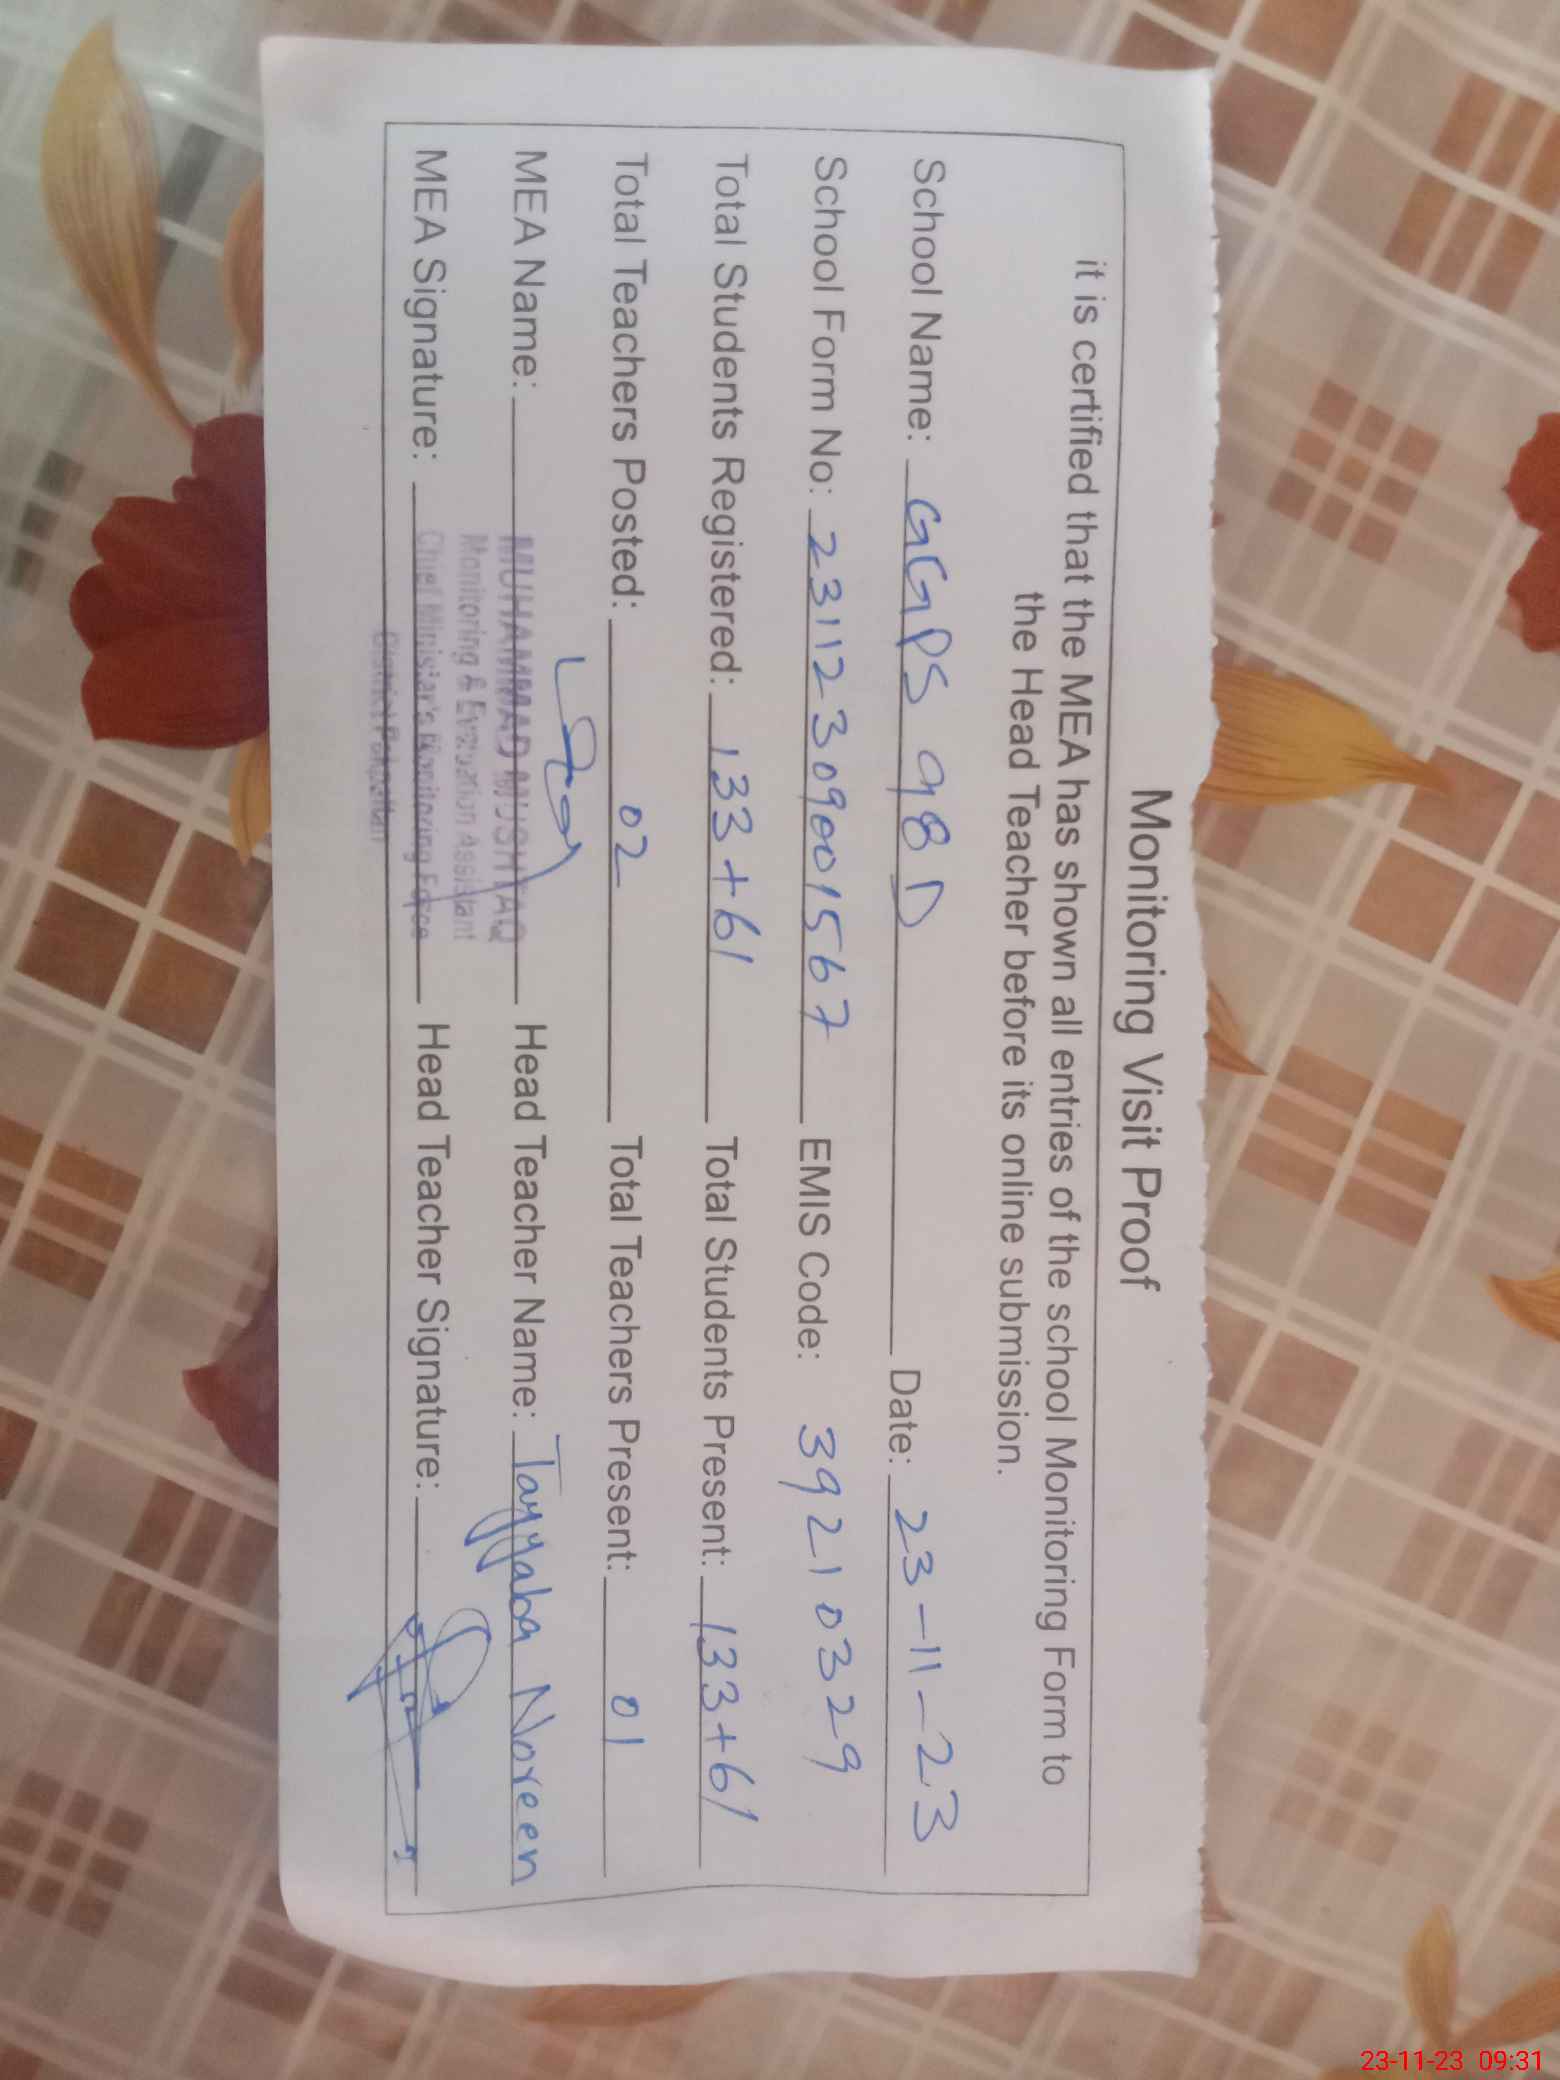 Monitoring Visit Proof
it is certified that the MEA has shown all entries of the school Monitoring Form to
the Head Teacher before its online submission.
School Name: GGPS 98 D Date: 23-11-23
School Form No: 23112309001567 EMIS Code: 39210329
Total Students Registered: 133+61 Total Students Present: 133+61
Total Teachers Posted: 02 Total Teachers Present: 01
MEA Name: MUHAMMAD MUSHTAQ Head Teacher Name: Tayyaba Noreen
Monitoring & Evaluation Assistant
MEA Signature: Chief Minister's Monitoring Force Head Teacher Signature:
District Pakpattan
23-11-23 09:31